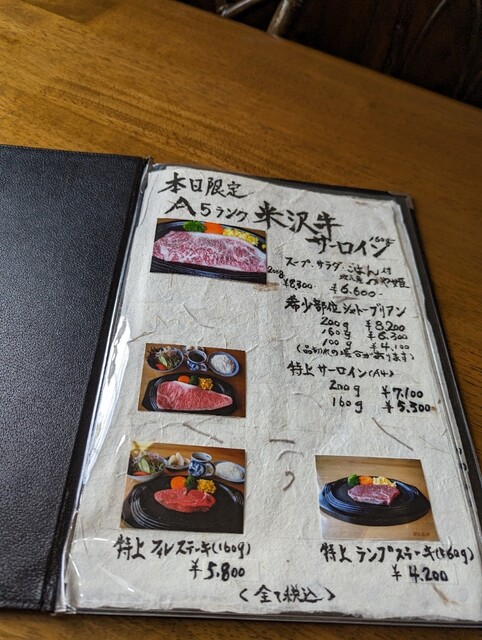 本日限定
A5ランク 米沢牛
サーロイン 160g
スープ.サラダ.ごはん付
つや姫
200g
¥8,300 ¥6.600-
希少部位シャトーブリアン
200g ¥8.200
160g ¥6.300
100g ¥4.100
(品切れの場合があります)
特上 サーロイン(A4)
200g ¥7.100
160g ¥5.500
特上 フィレステーキ(160g)
¥5.800
特上 ランプステーキ(160g)
¥4.200
(全て税込)